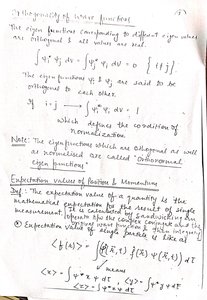 Orthogonality of wave functions
The eigen functions corresponding to different eigen values
are orthogonal & all values are real.
∫ψi* ψj dv = ∫ψj* ψi dv = 0 { i ≠ j }
The eigen functions ψi & ψj are said to be
orthogonal to each other.
If i = j → ∫ψi* ψj dv = 1
which defines the condition of
normalization.
Note: The eigen functions which are orthogonal as well
as normalised are called "Orthonormal
eigen functions."
Expectation values of Position & Momentum
Def: The expectation value of a quantity is the
mathematical expectation for the result of single
measurement. It is calculated by sandwiching an
operator b/w the complex conjugate and the
wave function & then integrating
Expectation value of single particle is like as
<f(r)> = ∫ψ*(r,t) f(r) ψ(r,t) dτ
means
<x> = ∫ψ* x ψ dτ , <y> = ∫ψ* y ψ dτ
<z> = ∫ψ* z ψ dτ